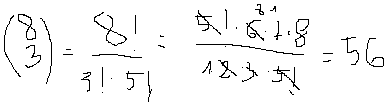 (8 3) = 8! / 3! · 5! = 5! · 6 · 7 · 8 / 1 · 2 · 3 · 5! = 56